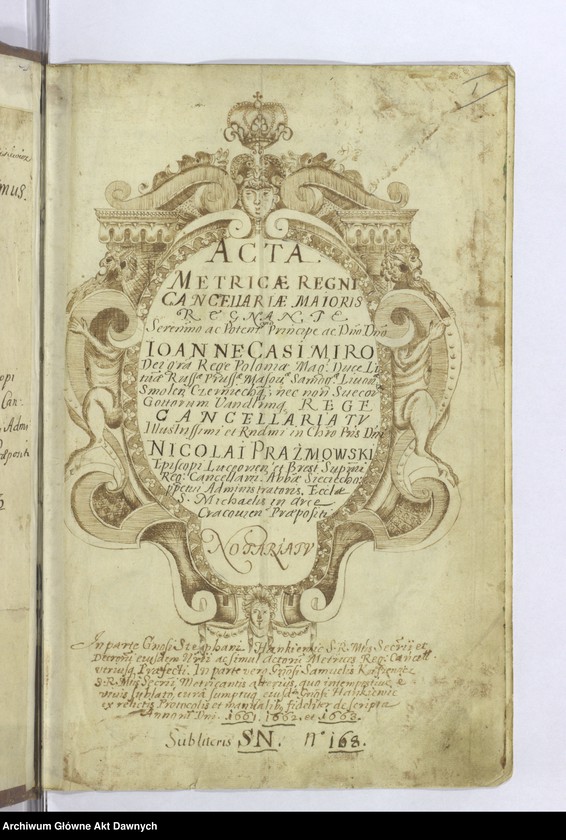 1
imus.
opi
Can:
Admi
ropositi
ACTA.
METRICÆ REGNI
CANCELLARIÆ MAIORIS
REGNANTE
Serenmo ac Potent Principe ac Dno Dno
IOANNE CASIMIRO
Dei gra Rege Poloniæ Mag: Duce Li
tuæ Russæ Prussæ Masoæ Samogæ Livonæ
Smolen Czerniechq; nec non Suecor
Gottorum Vandlmq REGE
CANCELLARIATV
Illustrissimi et Rndmi in Chro Pris Dni
NICOLAI PRAŻMOWSKI
Episcopi Luceorien: et Brest Supmi
Reg: Cancellarii Abbæ Sieciechov
ppetui Administratoris. Ecclæ
S. Michaelis in Arce
Cracovien Præpositi
NOTARIATV
In parte Gnosi Stephani Hankiewic S. R. Mtis Secrij et
Decretor eiusdem Nrij ac simul Actorū Metrices Regi Cancell
utriusq Præfecti. In parte vero Gnosi Samuelis
S. R. Mtis Secrij Metricantis alterius, quo intempestive e
vivis sublato, cura sumptuq eiusd Gnosi Hankiewic
ex relictis Protocolis et manualib fideliter descripta
Annorū Dni. 1661. 1662. et 1663.
Sub literis SN. Nº 168.
Archiwum Główne Akt Dawnych